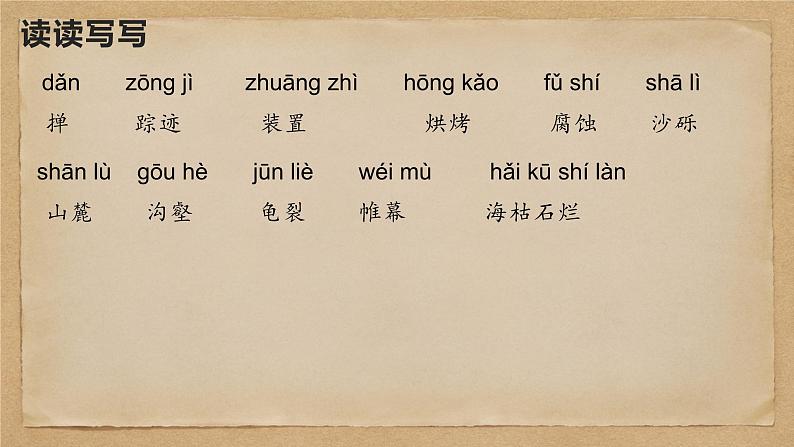 读读写写
dǎn zōng jì zhuāng zhì hōng kǎo fǔ shí shā lì
掸 踪迹 装置 烘烤 腐蚀 沙砾
shān lù gōu hè jūn liè wéi mù hǎi kū shí làn
山麓 沟壑 龟裂 帷幕 海枯石烂